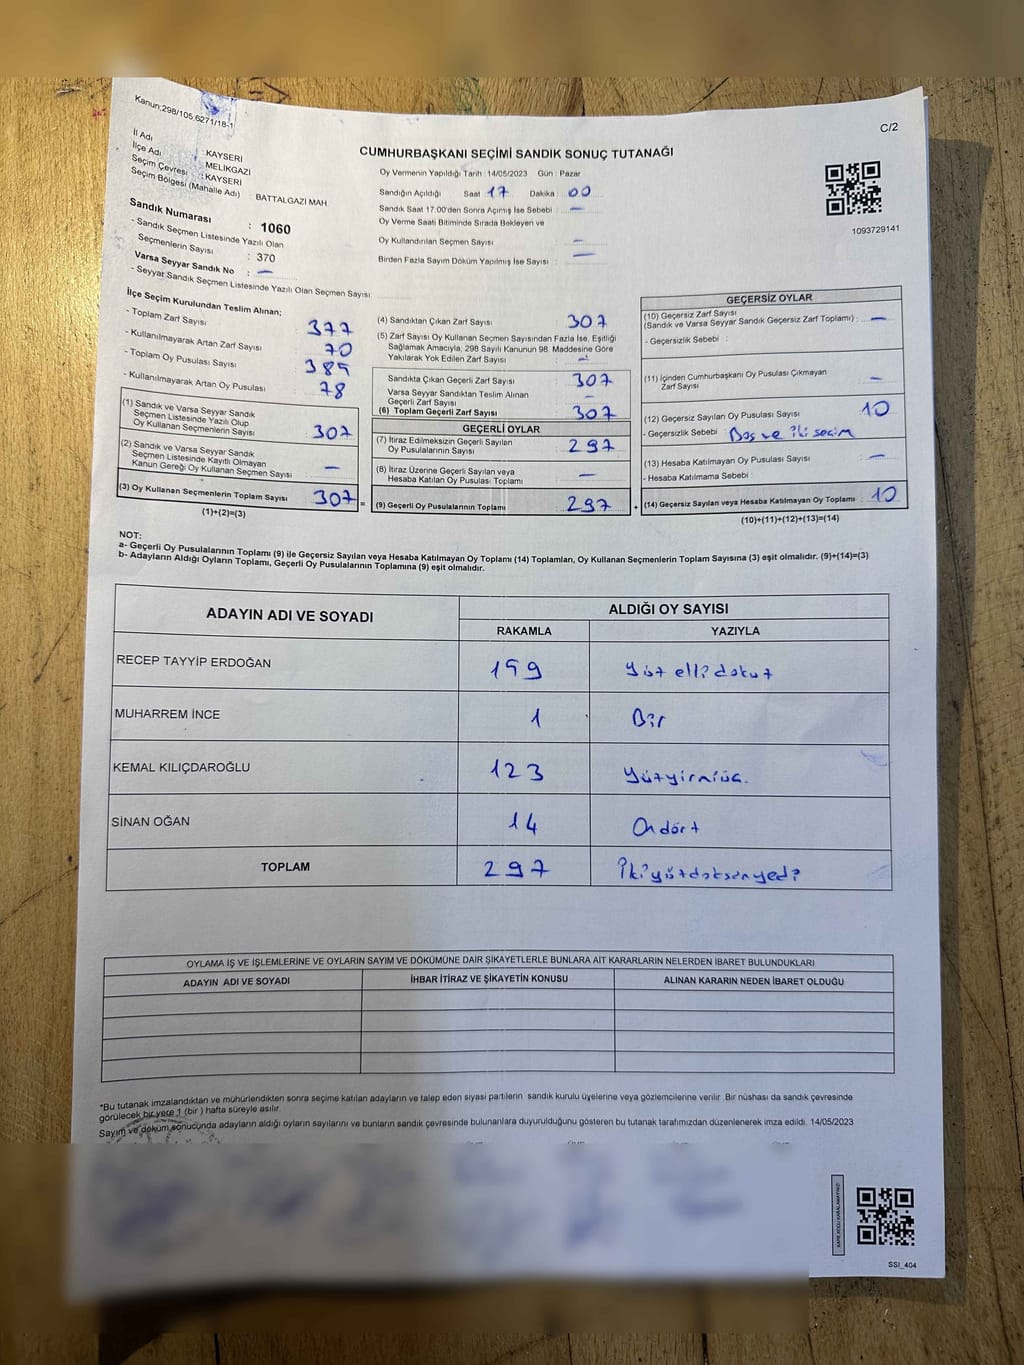 Kanun:298/105,6271/18-1
C/2
İl Adı : KAYSERİ
İlçe Adı : MELİKGAZİ
Seçim Çevresi : KAYSERİ
Seçim Bölgesi (Mahalle Adı) : BATTALGAZI MAH
Sandık Numarası : 1060
- Sandık Seçmen Listesinde Yazılı Olan
Seçmenlerin Sayısı : 370
Varsa Seyyar Sandık No : —
- Seyyar Sandık Seçmen Listesinde Yazılı Olan Seçmen Sayısı
CUMHURBAŞKANI SEÇİMİ SANDIK SONUÇ TUTANAĞI
Oy Vermenin Yapıldığı Tarih : 14/05/2023 Gün : Pazar
Sandığın Açıldığı Saat 17 Dakika : 00
Sandık Saat 17:00'den Sonra Açımış İse Sebebi : —
Oy Verme Saati Bitiminde Sırada Bekleyen ve
Oy Kullandırılan Seçmen Sayısı : —
Birden Fazla Sayım Döküm Yapılmış İse Sayısı : —
1093729141
İlçe Seçim Kurulundan Teslim Alınan;
- Toplam Zarf Sayısı 377
- Kullanılmayarak Artan Zarf Sayısı 70
- Toplam Oy Pusulası Sayısı 385
- Kullanılmayarak Artan Oy Pusulası 78
(1) Sandık ve Varsa Seyyar Sandık
Seçmen Listesinde Yazılı Olup
Oy Kullanan Seçmenlerin Sayısı : 307
(2) Sandık ve Varsa Seyyar Sandık
Seçmen Listesinde Kayıtlı Olmayan
Kanun Gereği Oy Kullanan Seçmen Sayısı : —
(3) Oy Kullanan Seçmenlerin Toplam Sayısı : 307 =
(1)+(2)=(3)
(4) Sandıktan Çıkan Zarf Sayısı : 307
(5) Zarf Sayısı Oy Kullanan Seçmen Sayısından Fazla İse, Eşitliği
Sağlamak Amacıyla, 298 Sayılı Kanunun 98. Maddesine Göre
Yakılarak Yok Edilen Zarf Sayısı : —
Sandıkta Çıkan Geçerli Zarf Sayısı : 307
Varsa Seyyar Sandıktan Teslim Alınan
Geçerli Zarf Sayısı : —
(6) Toplam Geçerli Zarf Sayısı : 307
GEÇERLİ OYLAR
(7) İtiraz Edilmeksizin Geçerli Sayılan
Oy Pusulalarının Sayısı : 297
(8) İtiraz Üzerine Geçerli Sayılan veya
Hesaba Katılan Oy Pusulası Toplamı : —
(9) Geçerli Oy Pusulalarının Toplamı : 297 +
GEÇERSİZ OYLAR
(10) Geçersiz Zarf Sayısı
(Sandık ve Varsa Seyyar Sandık Geçersiz Zarf Toplamı) : —
- Geçersizlik Sebebi :
(11) İçinden Cumhurbaşkanı Oy Pusulası Çıkmayan
Zarf Sayısı : —
(12) Geçersiz Sayılan Oy Pusulası Sayısı : 10
- Geçersizlik Sebebi : Boş ve iki seçim
(13) Hesaba Katılmayan Oy Pusulası Sayısı : —
- Hesaba Katılmama Sebebi :
(14) Geçersiz Sayılan veya Hesaba Katılmayan Oy Toplamı : 10
(10)+(11)+(12)+(13)=(14)
NOT:
a- Geçerli Oy Pusulalarının Toplamı (9) ile Geçersiz Sayılan veya Hesaba Katılmayan Oy Toplamı (14) Toplamları, Oy Kullanan Seçmenlerin Toplam Sayısına (3) eşit olmalıdır. (9)+(14)=(3)
b- Adayların Aldığı Oyların Toplamı, Geçerli Oy Pusulalarının Toplamına (9) eşit olmalıdır.
ADAYIN ADI VE SOYADI ALDIĞI OY SAYISI
RAKAMLA YAZIYLA
RECEP TAYYİP ERDOĞAN 159 Yüz elli dokuz
MUHARREM İNCE 1 Bir
KEMAL KILIÇDAROĞLU 123 Yüzyirmiüç.
SİNAN OĞAN 14 Ondört
TOPLAM 297 İkiyüzdoksanyedi
OYLAMA İŞ VE İŞLEMLERİNE VE OYLARIN SAYIM VE DÖKÜMÜNE DAİR ŞİKAYETLERLE BUNLARA AİT KARARLARIN NELERDEN İBARET BULUNDUKLARI
ADAYIN ADI VE SOYADI İHBAR İTİRAZ VE ŞİKAYETİN KONUSU ALINAN KARARIN NEDEN İBARET OLDUĞU
*Bu tutanak imzalandıktan ve mühürlendikten sonra seçime katılan adayların ve talep eden siyasi partilerin sandık kurulu üyelerine veya gözlemcilerine verilir. Bir nüshası da sandık çevresinde
görülecek bir yere 1 (bir ) hafta süreyle asılır.
Sayım ve döküm sonucunda adayların aldığı oyların sayılarını ve bunların sandık çevresinde bulunanlara duyurulduğunu gösteren bu tutanak tarafımızdan düzenlenerek imza edildi. 14/05/2023
KARE KODU KARALAMAYINIZ!
SSI_404